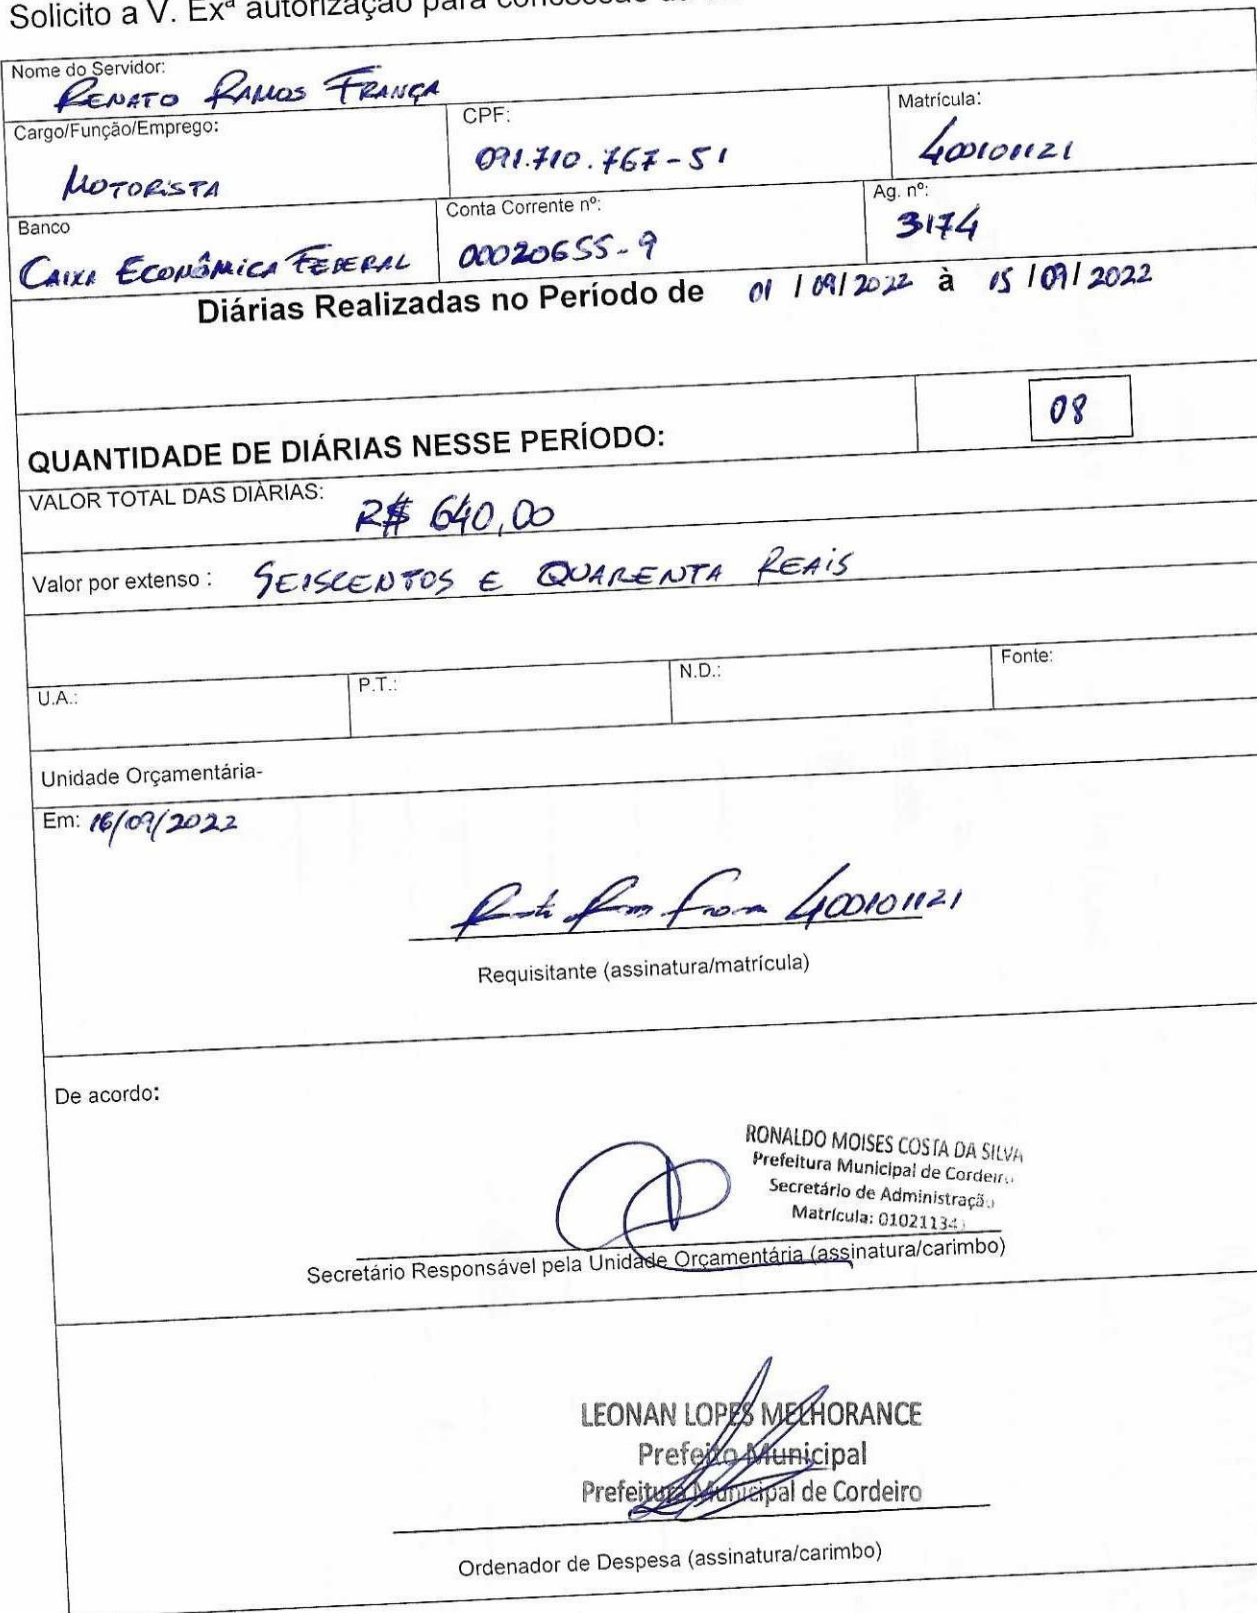 Solicito a V. Exª autorização para concessão
Nome do Servidor:
RENATO RAMOS FRANÇA
Cargo/Função/Emprego:
MOTORISTA
CPF:
091.710.767-51
Matrícula:
400101121
Banco
CAIXA ECONÔMICA FEDERAL
Conta Corrente nº:
00020655-9
Ag. nº:
3174
Diárias Realizadas no Período de 01/09/2022 à 15/09/2022
QUANTIDADE DE DIÁRIAS NESSE PERÍODO: 08
VALOR TOTAL DAS DIÁRIAS: R$ 640,00
Valor por extenso : SEISCENTOS E QUARENTA REAIS
U.A.: P.T.: N.D.: Fonte:
Unidade Orçamentária-
Em: 16/09/2022
400101121
Requisitante (assinatura/matrícula)
De acordo:
RONALDO MOISES COSTA DA SILVA
Prefeitura Municipal de Cordeiro
Secretário de Administração
Matrícula:
Secretário Responsável pela Unidade Orçamentária (assinatura/carimbo)
LEONAN LOPES MELHORANCE
Prefeito Municipal
Prefeitura Municipal de Cordeiro
Ordenador de Despesa (assinatura/carimbo)